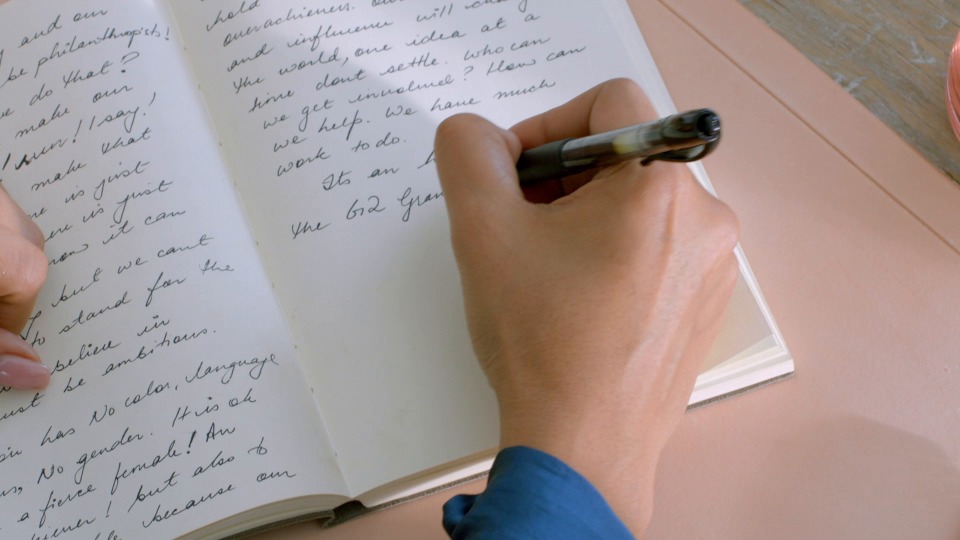 and our
be philanthropists!
do that?
make our
! I say!
make that
is just
is just
now it can
but we cant
to stand for the
believe in
be ambitious.
has No color, language
No gender. It is ok
a fierce female! An
! but also to
because our
hold
overachievers.
and influence will
the world, one idea at a
time dont settle. Who can
we get involved? How can
we help. We have much
work to do.
Its an
the G12